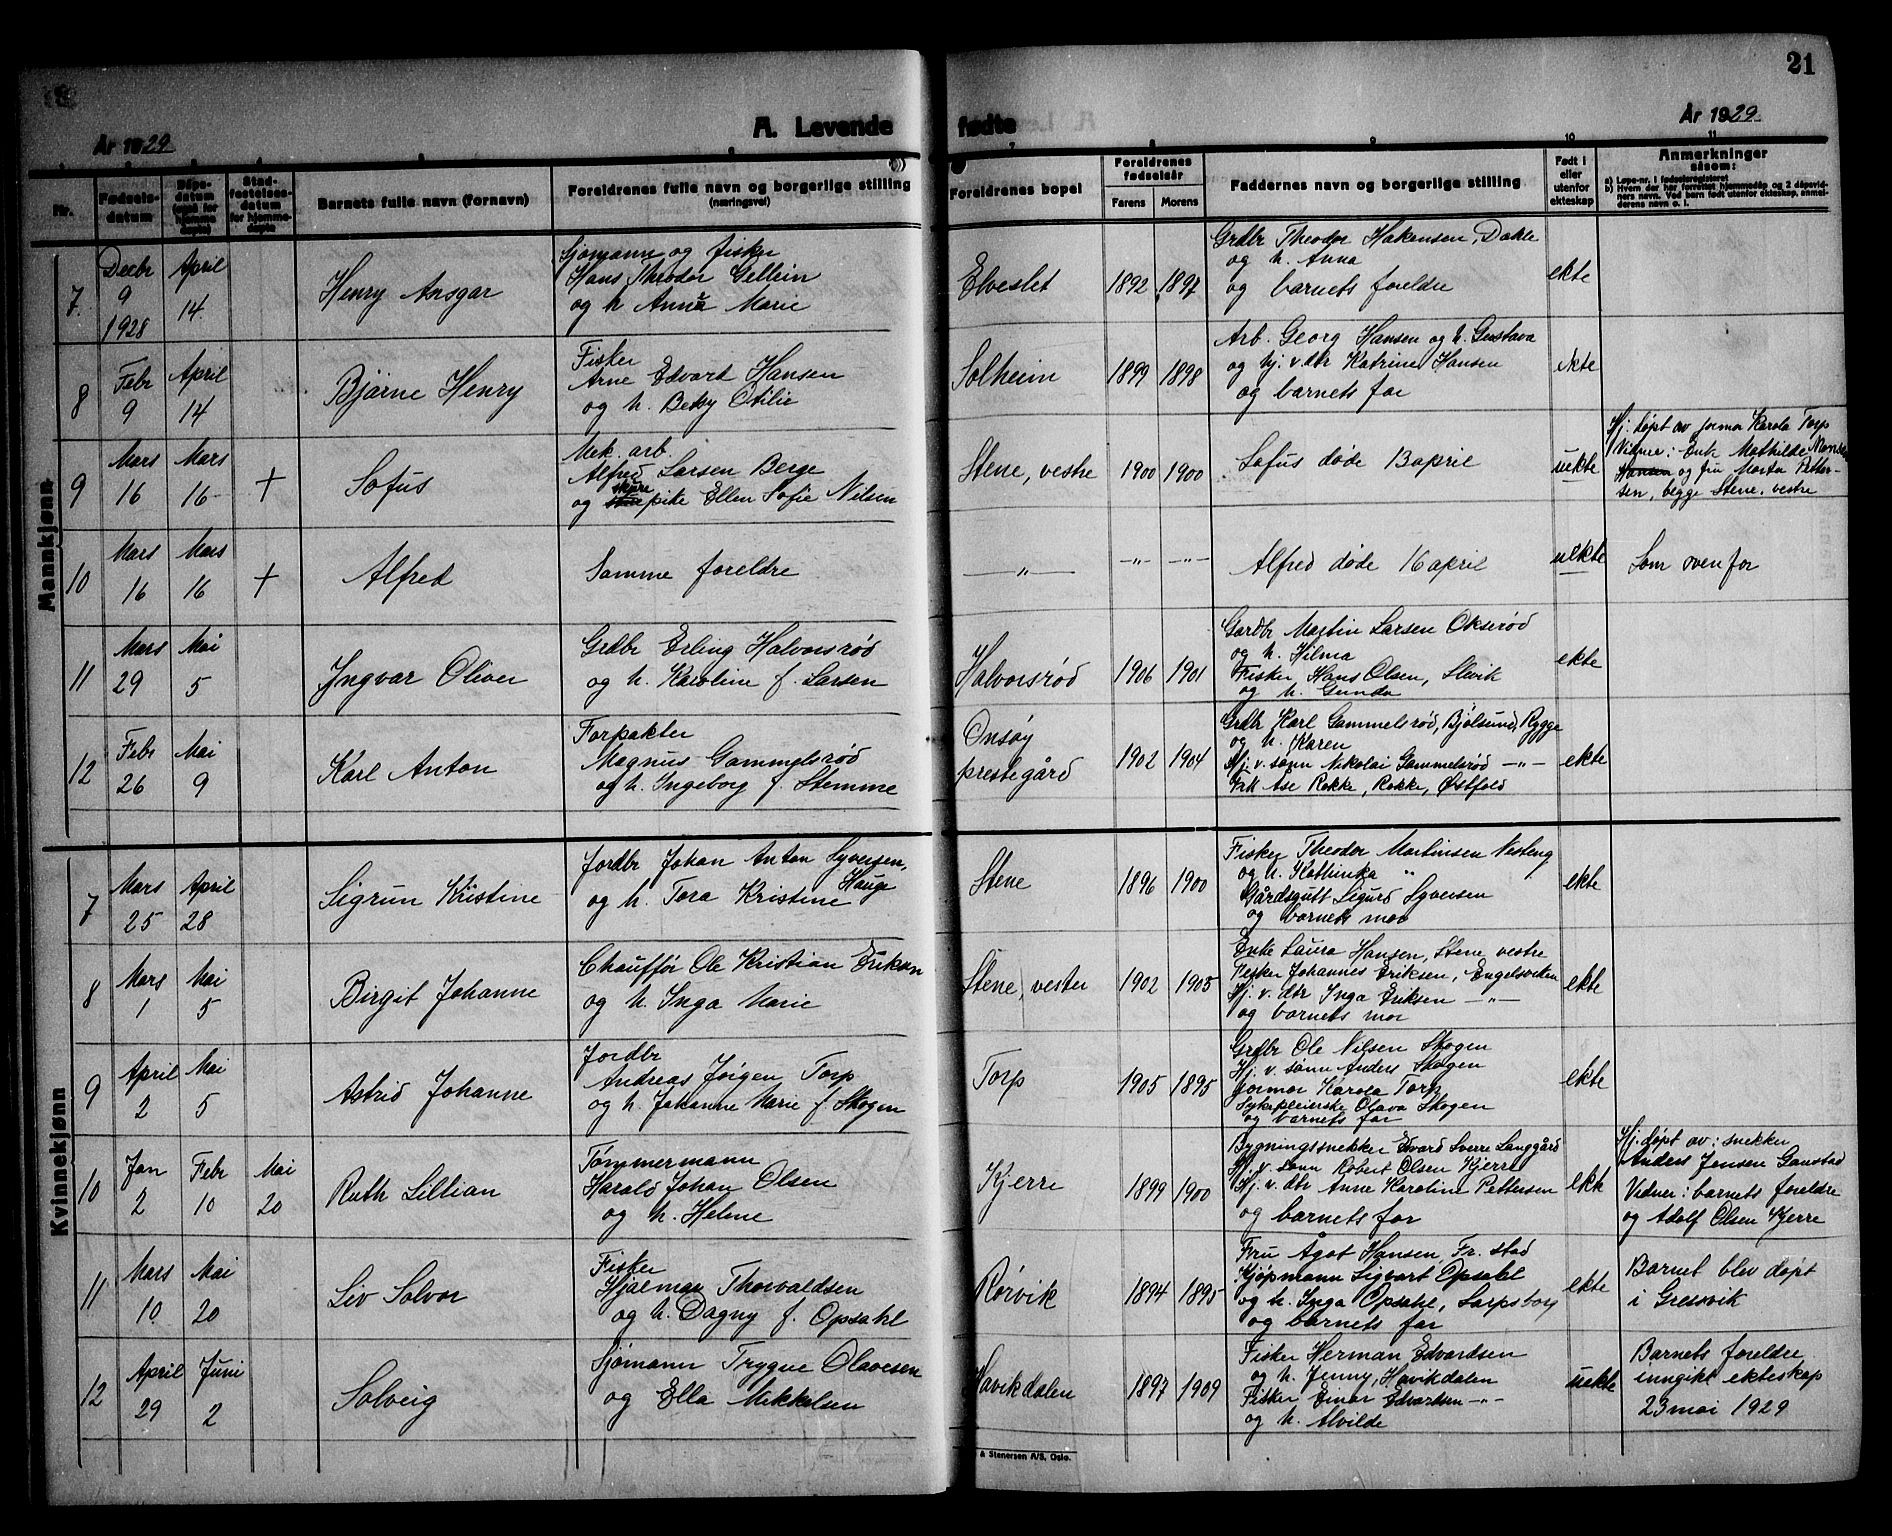 21
År 1929
A. Levende fødte
År 1929
Nr.
Fødsels-datum
Dåps-datum
Stad-festelses-datum for hjemme-døpte
Barnets fulle navn (fornavn)
Foreldrenes fulle navn og borgerlige stilling
(næringsvei)
Foreldrenes bopel
Foreldrenes fødselsår
Farens
Morens
Faddernes navn og borgerlige stilling
Født i eller utenfor ekteskap
Anmerkninger
såsom:
a) Løpe-nr. i fødselsregisteret
b) Hvem der har forrettet hjemmedåp og 2 dåpsvidners navn. Ved barn født utenfor ekteskap, anmelderens navn o. l.
Mannkjønn
7
Decbr 9 1928
April 14
Henry Ansgar
Sjømann og fisker
Hans Theodor Gellein
og h. Anna Marie
Elveslet
1892
1897
Grdbr Theodor Hakensen, Dakle
og h. Anna
og barnets foreldre
ekte
8
Febr 9
April 14
Bjarne Henry
Fisker
Arne Edvard Hansen
og h. Betsy Otilie
Solheim
1899
1898
Arb. Georg Hansen og h. Gustava
og hj. v. dtr Katrine Hansen
og barnets far
ekte
9
Mars 16
Mars 16
+
Sofus
Mek. arb.
Alfred Larsen Berge
og pike Ellen Sofie Nilsen
Stene, vestre
1900
1900
Sofus døde 13 april
uekte
Hj. døpt av formor Karola Torp
Vidner: Enk Mathilde
Hansen og fru Marta Petter-
sen, begge Stene, vestre
10
Mars 16
Mars 16
+
Alfred
Samme foreldre
— „ —
-„-
-„-
Alfred døde 16 april
uekte
Som ovenfor
11
Mars 29
Mai 5
Ingvar Oliver
Grdbr Erling Halvorsrød
og h. Karoline f. Larsen
Halvorsrød
1906
1901
Gardbr Martin Larsen Okserød
og h. Hilma
Fisker Hans Olsen, Slevik
og h. Gunda
ekte
12
Febr 26
Mai 9
Karl Anton
Forpakter
Magnus Gammelsrød
og h. Ingeborg f. Stemme
Onsøy
prestegård
1902
1904
Grdbr Karl Gammelsrød, Bjølsund, Rygge
og h. Karen
Hj. v. sønn Nikolai Gammelsrød -„-
Frk. Åse Rokke, Rokke, Østfold
ekte
Kvinnekjønn
7
Mars 25
April 28
Sigrun Kristine
Jordbr Johan Anton Syversen,
Hauge
og h. Tora Kristine
Stene
1896
1900
Fisker Theodor Martinsen Vesteng
og h. Kathinka „
Gårdsgutt Sigurd Syversen
og barnets mor
ekte
8
Mars 1
Mai 5
Birgit Johanne
Chauffør Ole Kristian Eriksen
og h. Inga Marie
Stene, vester
1902
1905
Enke Laura Hansen, Stene, vestre
Fisker Johannes Eriksen, Engelsviken
Hj. v. dtr Inga Eriksen -„-
og barnets mor
ekte
9
April 2
Mai 5
Astrid Johanne
Jordbr
Andreas Jørgen Torp
og h. Johanne Marie f. Skogen
Torp
1905
1895
Grdbr Ole Nilsen Skogen
Hj. v. sønn Anders Skogen
Formor Karola Torp
Sykepleierske Olava Skogen
og barnets far
ekte
10
Jan 2
Febr 10
Mai 20
Ruth Lillian
Tømmermann
Harald Johan Olsen
og h. Helene
Kjerre
1899
1900
Bygningssnekker Edvard Sverre Langgård
Hj. v. sønn Robert Olsen Kjerre
Hj. v. dtr Anne Karoline Pettersen
og barnets far
ekte
Hj. døpt av: snekker
Anders Jensen Ganstad
Vidner: barnets foreldre
og Adolf Olsen Kjerre
11
Mars 10
Mai 20
Liv Solvor
Fisker
Hjalmar Thorvaldsen
og h. Dagny f. Opsahl
Rørvik
1894
1895
Fru Ågot Hansen, Fr. stad
Kjøpmann Sigvart Opsahl
og h. Inga Opsahl, Sarpsborg
og barnets far
ekte
Barnet blev døpt
i Gressvik
12
April 29
Juni 2
Solveig
Sjømann Trygve Olavesen
og Ella Mikkelsen
Havikdalen
1897
1909
Fisker Herman Edvardsen
og h. Jenny, Havikdalen
Fisker Einar Edvardsen -„-
og h. Alvilde
uekte
Barnets foreldre
inngikk ekteskap
23 mai 1929
& Stenersen A/S, Oslo.